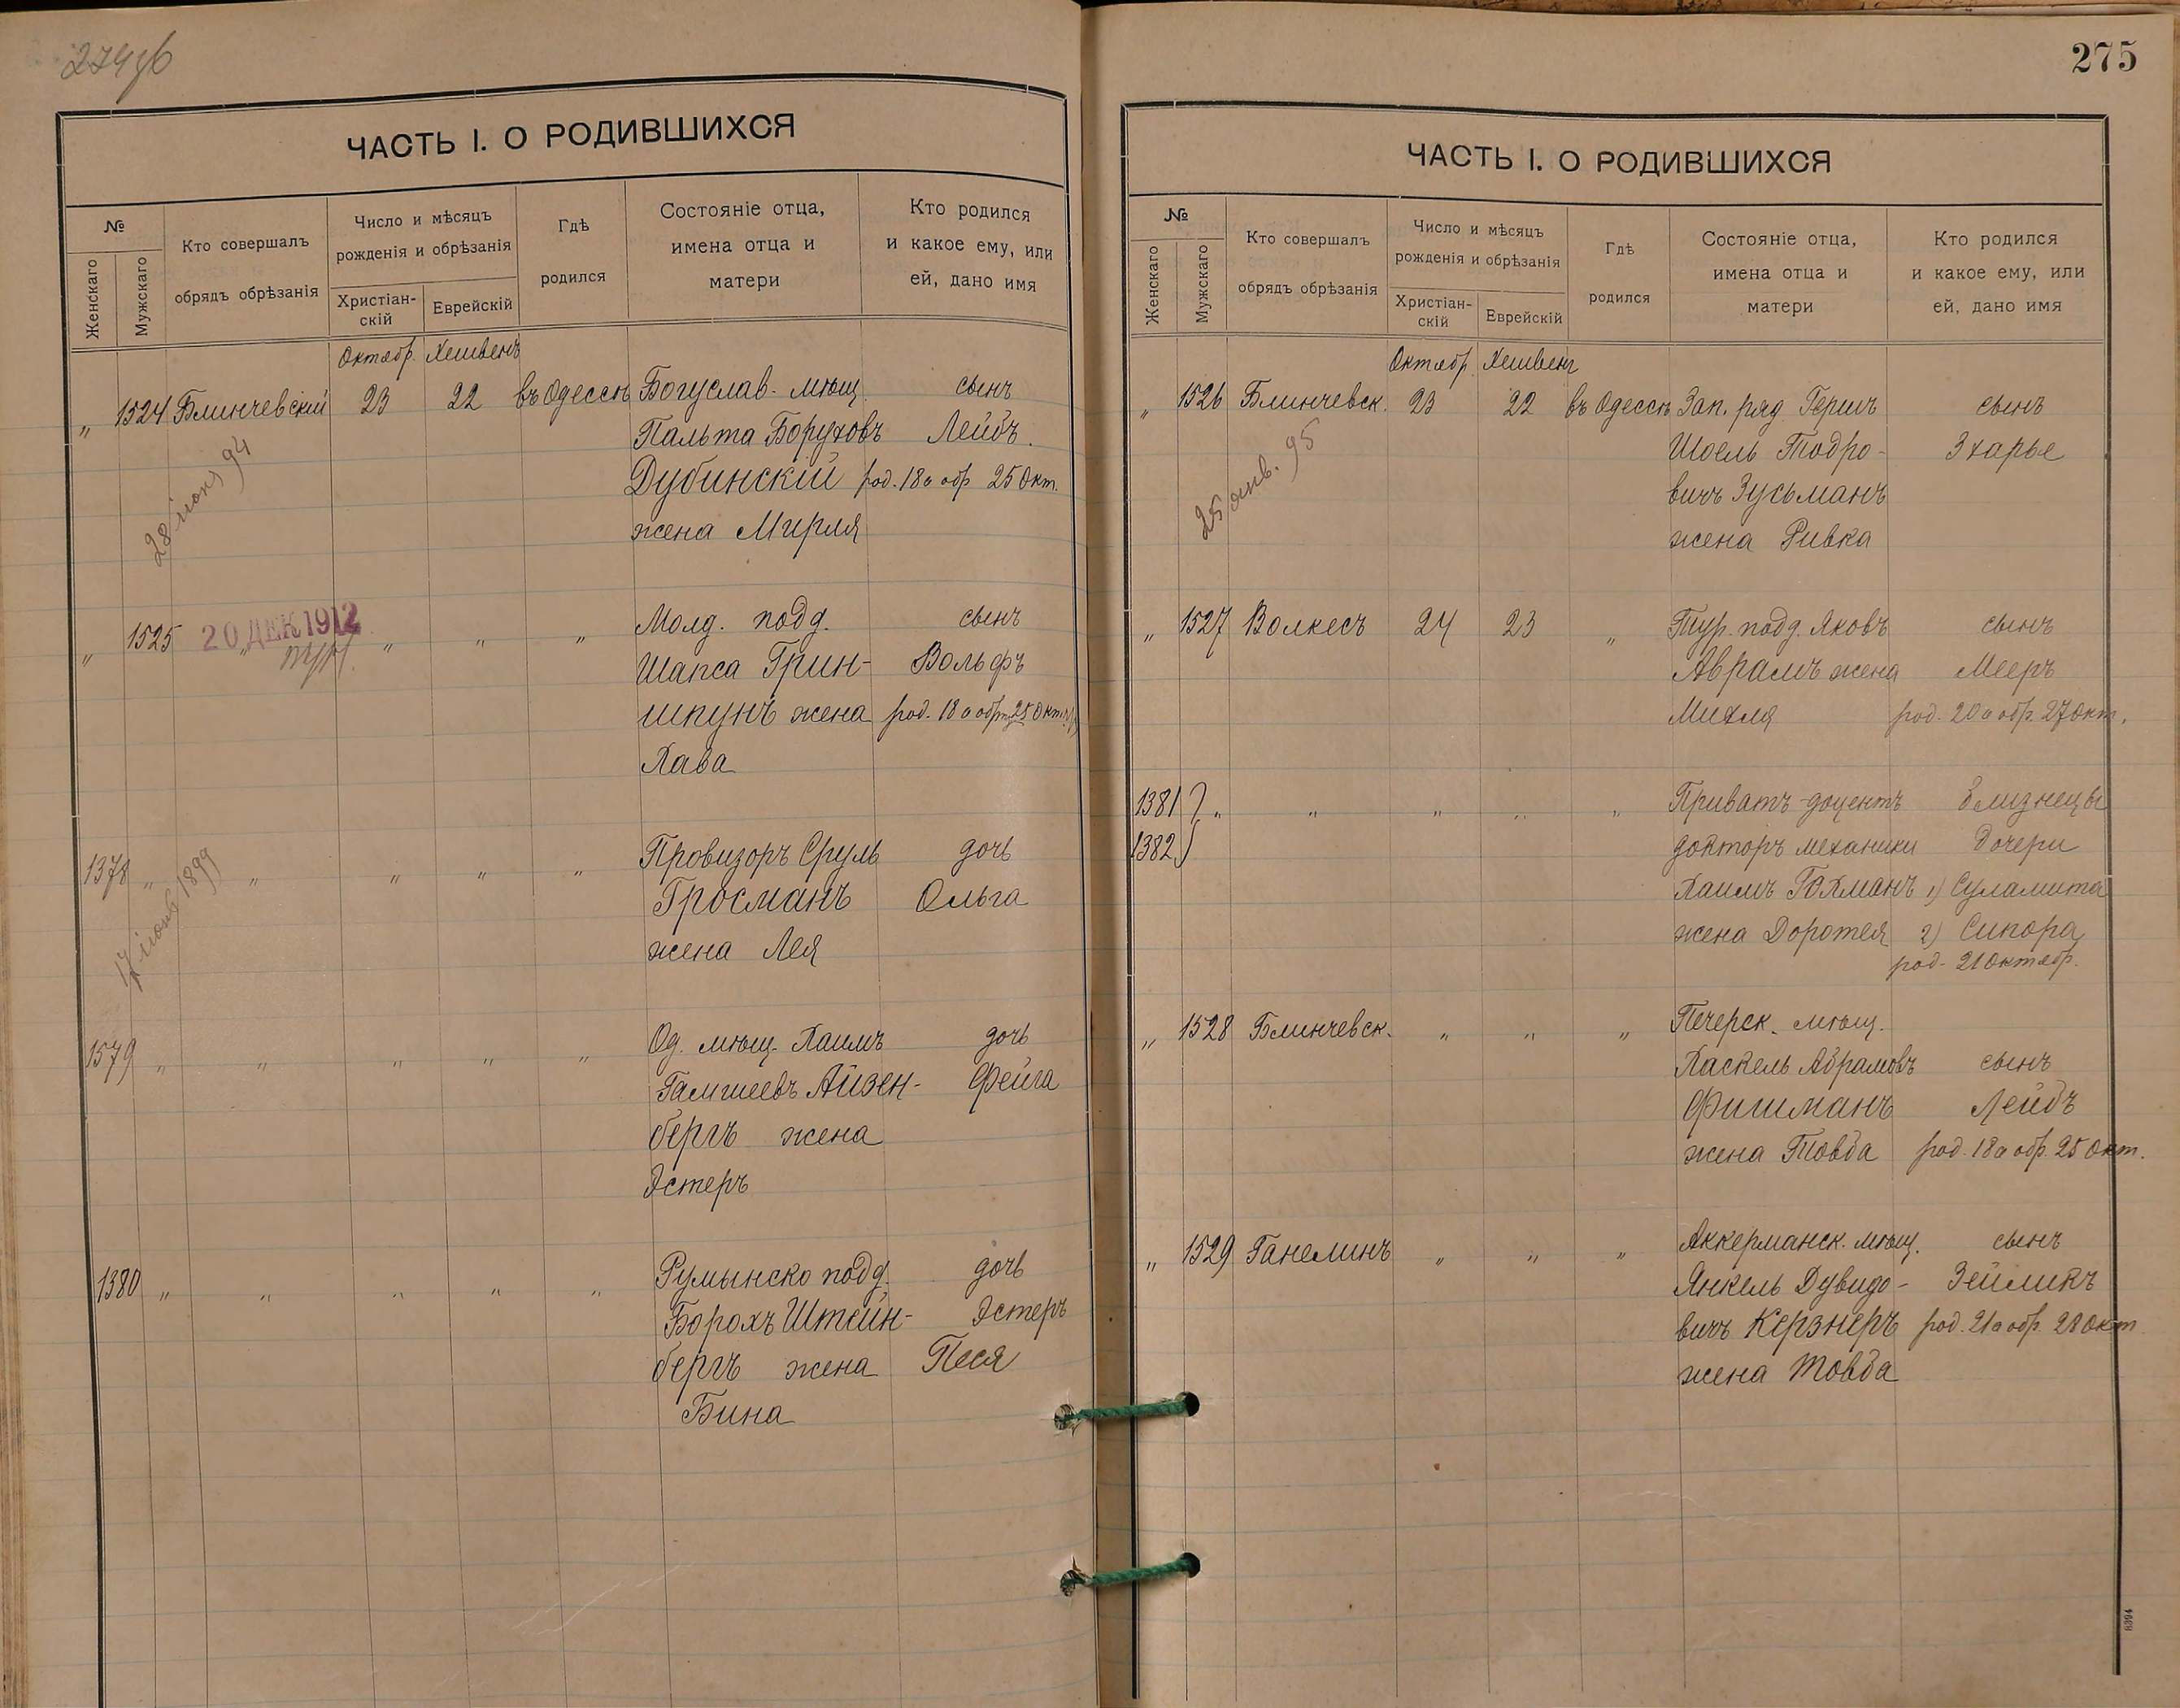 274 об
ЧАСТЬ I. О РОДИВШИХСЯ
№
Женскаго
Мужскаго
Кто совершалъ
обрядъ обрѣзанія
Число и мѣсяцъ
рожденія и обрѣзанія
Христіан-
скій
Еврейскій
Гдѣ
родился
Состояніе отца,
имена отца и
матери
Кто родился
и какое ему, или
ей, дано имя
Октябр. Хешвенъ
„ 1524 Блинчевскій 23 22 въ Одессѣ Богуслав. мѣщ. сынъ
Пальта Боруховъ Лейбъ.
Дубинскій род. 18 а обр 25 Окт.
жена Мирля
94
„ 1525 „ „ „ „ Молд. подд. сынъ
20 ДЕК 1912
Шапса Грин- Вольфъ
шпунъ жена род. 18 а обр. 25 Окт.
Хава
1378 „ „ „ „ „ Провизоръ Сруль дочь
Гросманъ Ольга
жена Лея
17 1899
1579 „ „ „ „ „ Од. мѣщ. Хаимъ дочь
Гамшеевъ Айзен- Фейга
бергъ жена
Эстеръ
1380 „ „ „ „ „ Румынско подд. дочь
Борохъ Штейн- Эстеръ
бергъ жена Песя
Бина
275
ЧАСТЬ I. О РОДИВШИХСЯ
№
Женскаго
Мужскаго
Кто совершалъ
обрядъ обрѣзанія
Число и мѣсяцъ
рожденія и обрѣзанія
Христіан-
скій
Еврейскій
Гдѣ
родился
Состояніе отца,
имена отца и
матери
Кто родился
и какое ему, или
ей, дано имя
Октябр. Хешвенъ
„ 1526 Блинчевск. 23 22 въ Одессѣ Зап. ряд. Гершъ сынъ
Шоель Тодро- Зхарье
вичъ Зусьманъ
жена Ривка
25 янв. 95
„ 1527 Волкесъ 24 23 „ Тур. подд. Яковъ сынъ
Аврамъ жена Мееръ
Михля род. 20 а обр. 27 окт.
1381 „ „ „ „ „ Приватъ-доцентъ близнецы
1382 докторъ механики дочери
Хаимъ Гохманъ 1) Суламита
жена Доротея 2) Сипора
род. 21 Октябр.
„ 1528 Блинчевск. „ „ „ Печерск. мѣщ.
Хаскель Абрамовъ сынъ
Фишманъ Лейбъ
жена Товба род. 18 а обр. 25 Окт.
„ 1529 Ганелинъ „ „ „ Аккерманск. мѣщ. сынъ
Янкель Дувидо- Зейликъ
вичъ Керзнеръ род. 21 а обр. 28 Окт
жена Товба
8394